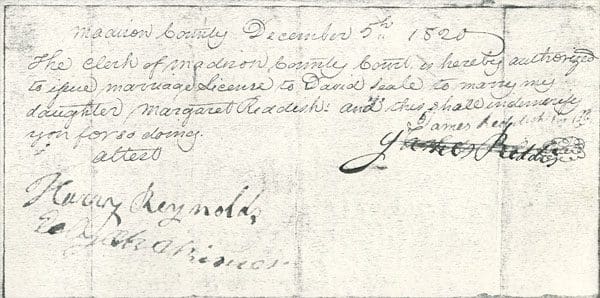 Madison County December 5th 1820
The clerk of Madison County Court is hereby authorized
to issue marriage License to David Seale to marry my
daughter Margaret Reddish: and this shall indemnify
you for so doing.
James Reddish
attest
James Reddish
Harry Reynolds